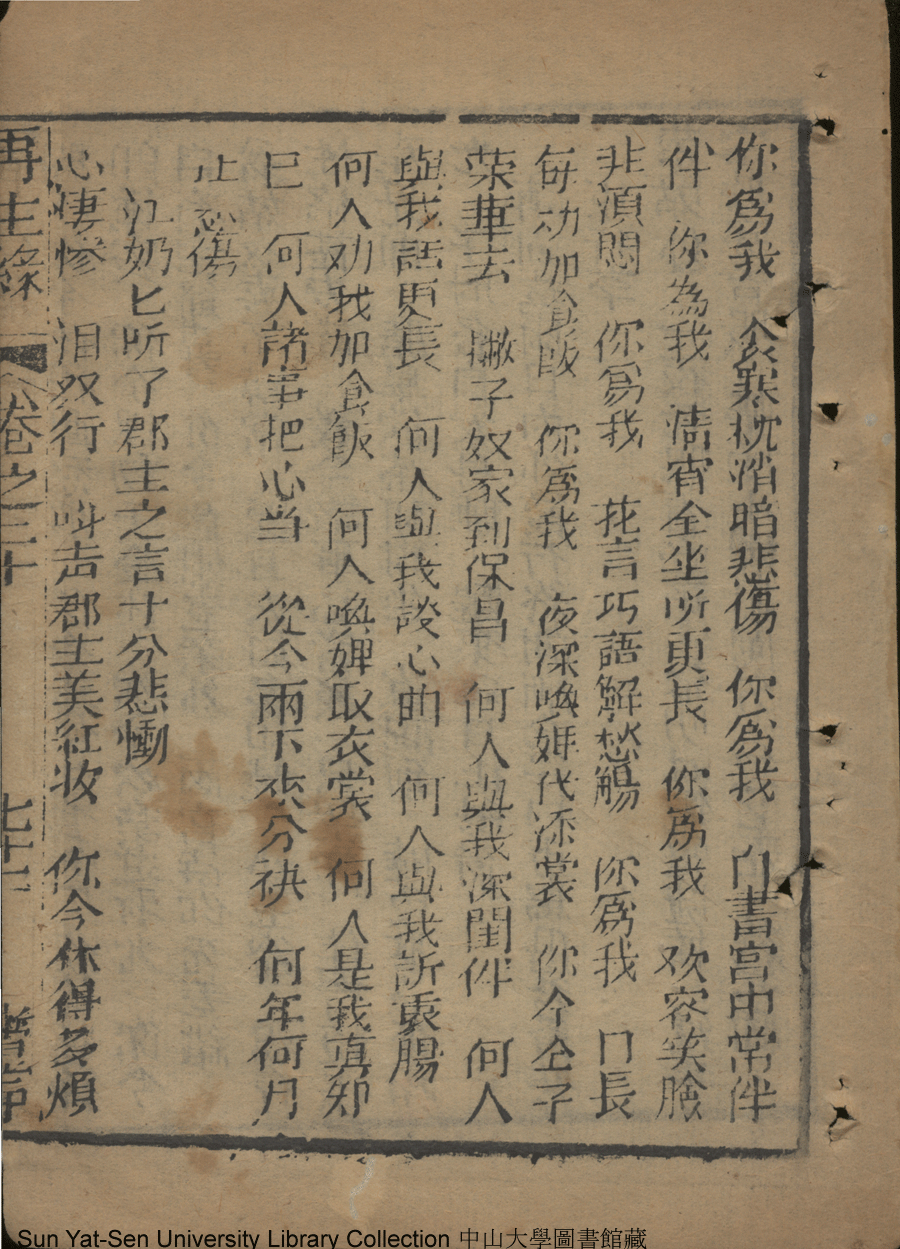 你為我　衾寒枕悄暗悲傷　你為我　白書宮中常伴
伴　你為我　清宵仝坐所更長　你為我　欢容笑臉
非湏悶　你為我　花言巧語解愁觴　你為我　门長
每劝加食飯　你為我　夜深喚婢代添裳　你今仝子
荣華去　撇子奴家到保昌　何人與我深闺伴　何人
與我話更長　何人與我談心曲　何人與我訢衷腸
何人劝我加食飯　何人喚婢取衣裳　何人是我真知
巳　何人諸事把心当　從今兩下來分袂　何年何月
止悲傷
江奶匕听了郡主之言十分悲慟
心悽惨　泪双行　呌声郡主美紅妝　你今休得多煩
再生緣　卷之三十　七十一
Sun Yat-Sen University Library Collection 中山大學圖書館藏